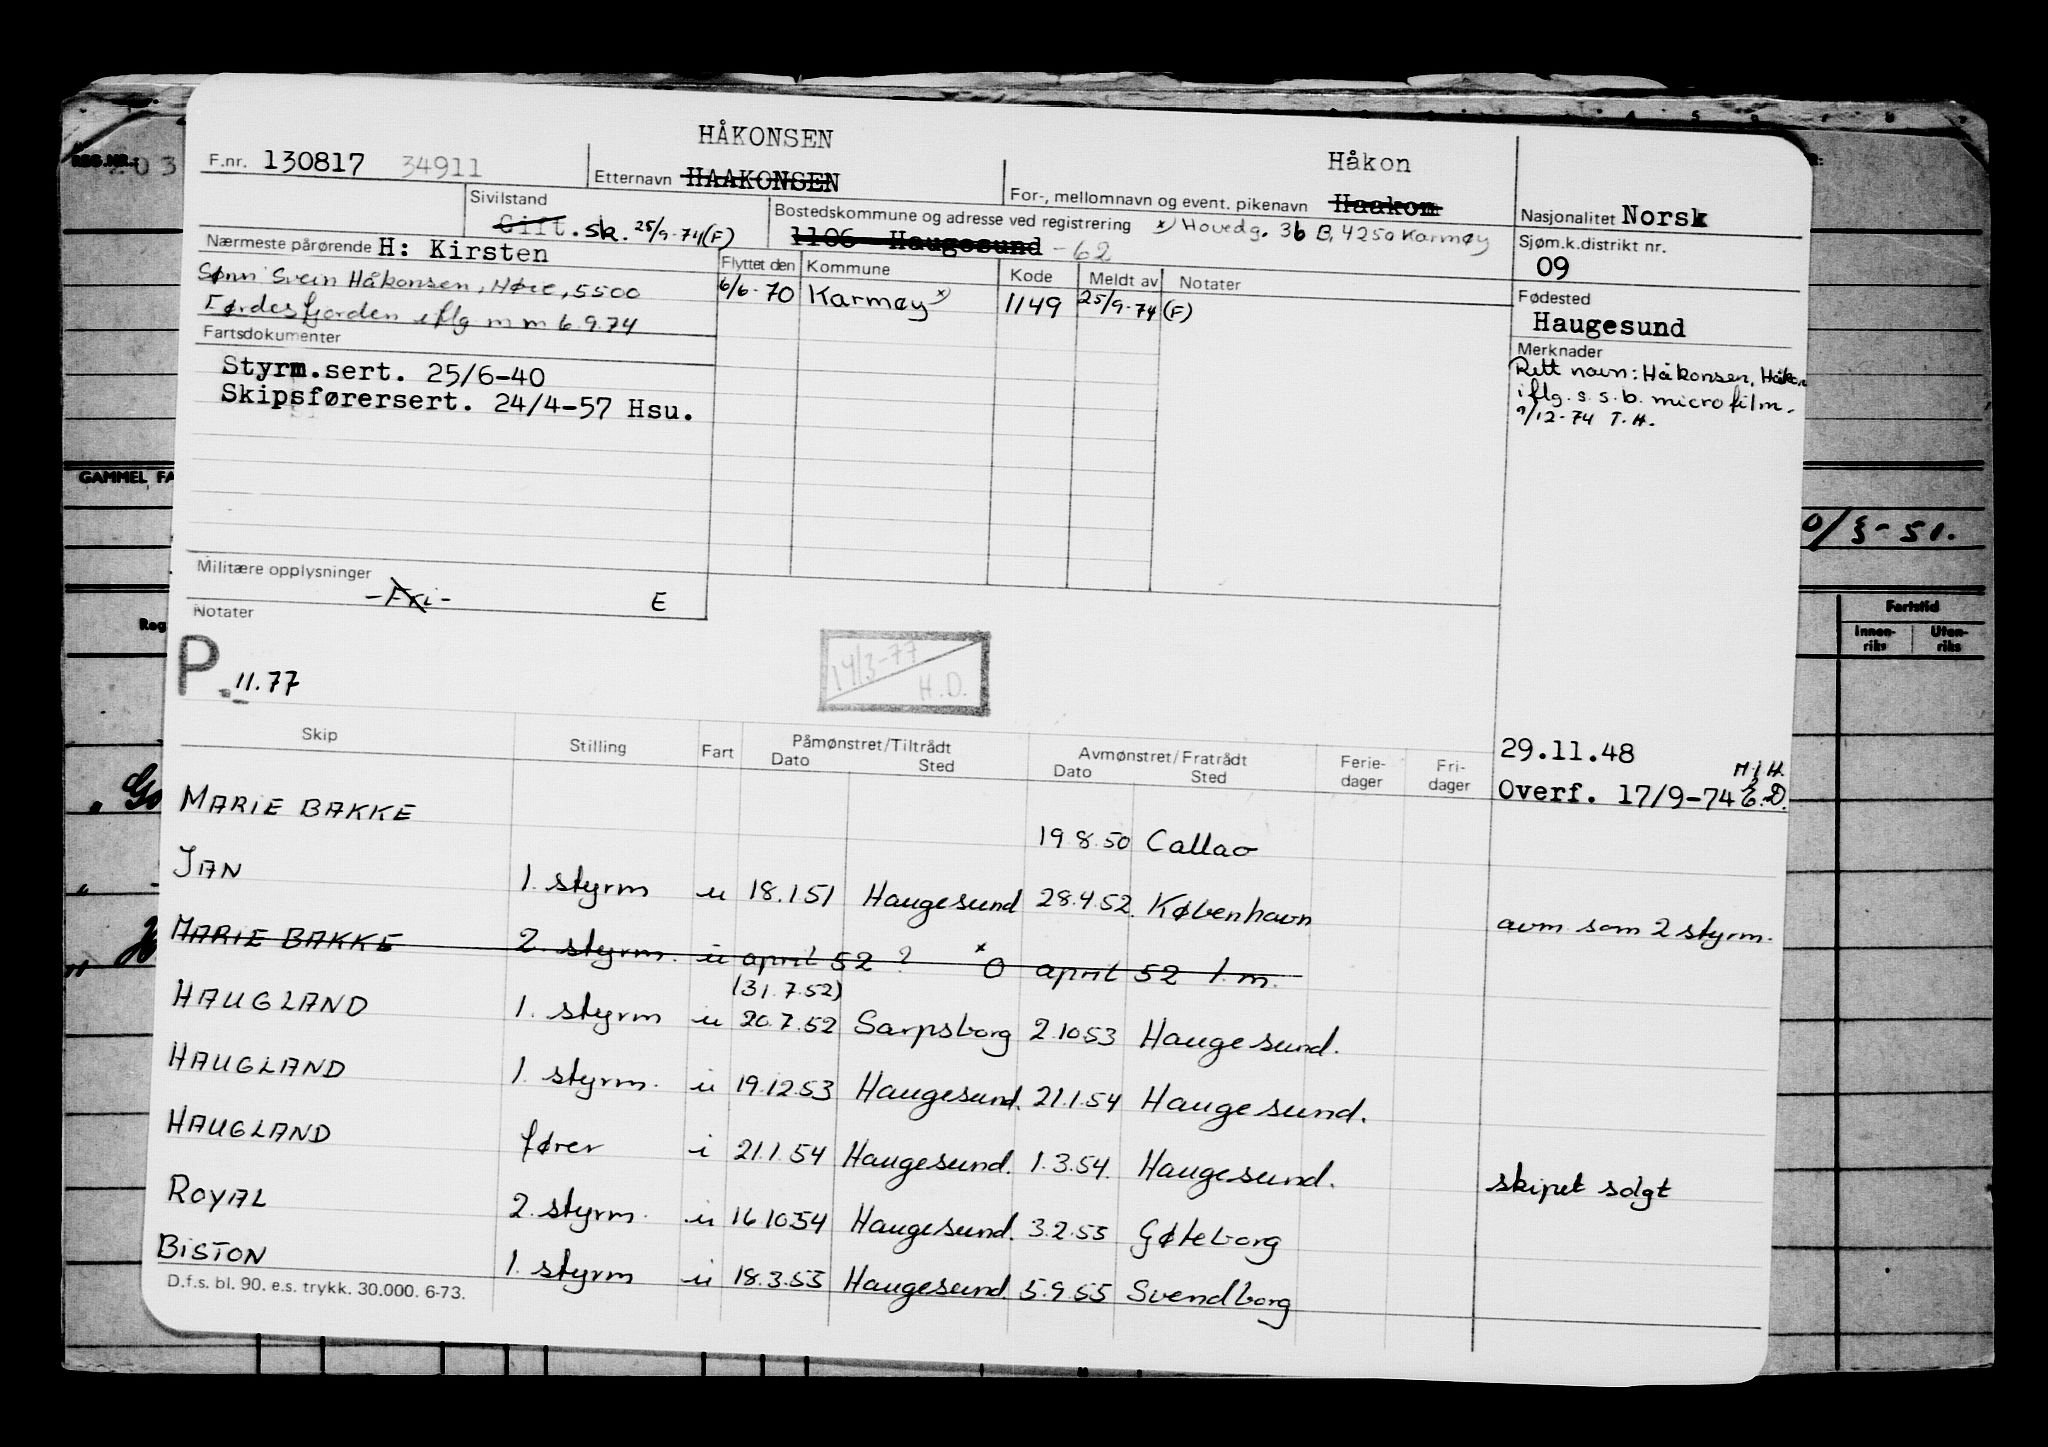 HÅKONSEN
Håkon
F.nr. 130817 34911
Etternavn HAAKONSEN
For-, mellomnavn og event. pikenavn Haakon
Nasjonalitet Norsk
Sivilstand
Gift. sk. 25/9-74(F)
Bostedskommune og adresse ved registrering x) Hovedg. 36 B, 4250 Karmøy
1106 Haugesund -62
Sjøm.k.distrikt nr.
09
Nærmeste pårørende H: Kirsten
Sønn Svein Håkonsen, 5500
Førdesfjorden iflg m m 6.9.74
Flyttet den Kommune Kode Meldt av Notater
6/6-70 Karmøy x) 1149 25/9-74 (F)
Fødested
Haugesund
Fartsdokumenter
Styrm.sert. 25/6-40
Skipsførersert. 24/4-57 Hsu.
Merknader
Rett navn: Håkonsen, Håkon
iflg. s.s.b. microfilm.
9/12-74 T.H.
Militære opplysninger
-Fri- E
Notater
P. 11.77
14/3-77
H.D.
REG.NR.:
GAMMEL FA
Reg
0/5-51.
Fartstid
Innen-
riks
Uten-
riks
Skip Stilling Fart Påmønstret/Tiltrådt Avmønstret/Fratrådt Ferie-
dager Fri-
dager
Dato Sted Dato Sted
29.11.48
Overf. 17/9-74
MARIE BAKKE 19.8.50 Callao
JAN 1. styrm u 18.1.51 Haugesund 28.4.52. København avm som 2 styrm.
MARIE BAKKE 2. styrm. u april 52 ? x O april 52 1 m.
(31.7.52)
HAUGLAND 1. styrm u 20.7.52 Sarpsborg 2.10.53 Haugesund.
HAUGLAND 1. styrm. u 19.12.53 Haugesund. 21.1.54 Haugesund.
HAUGLAND fører i 21.1.54 Haugesund. 1.3.54. Haugesund. skipet solgt
ROYAL 2. styrm. u 16.10.54 Haugesund. 3.2.55 Gøteborg
BISTON 1. styrm u 18.3.55 Haugesund. 5.9.55 Svendborg
D.f.s. bl. 90. e.s. trykk. 30.000. 6-73.